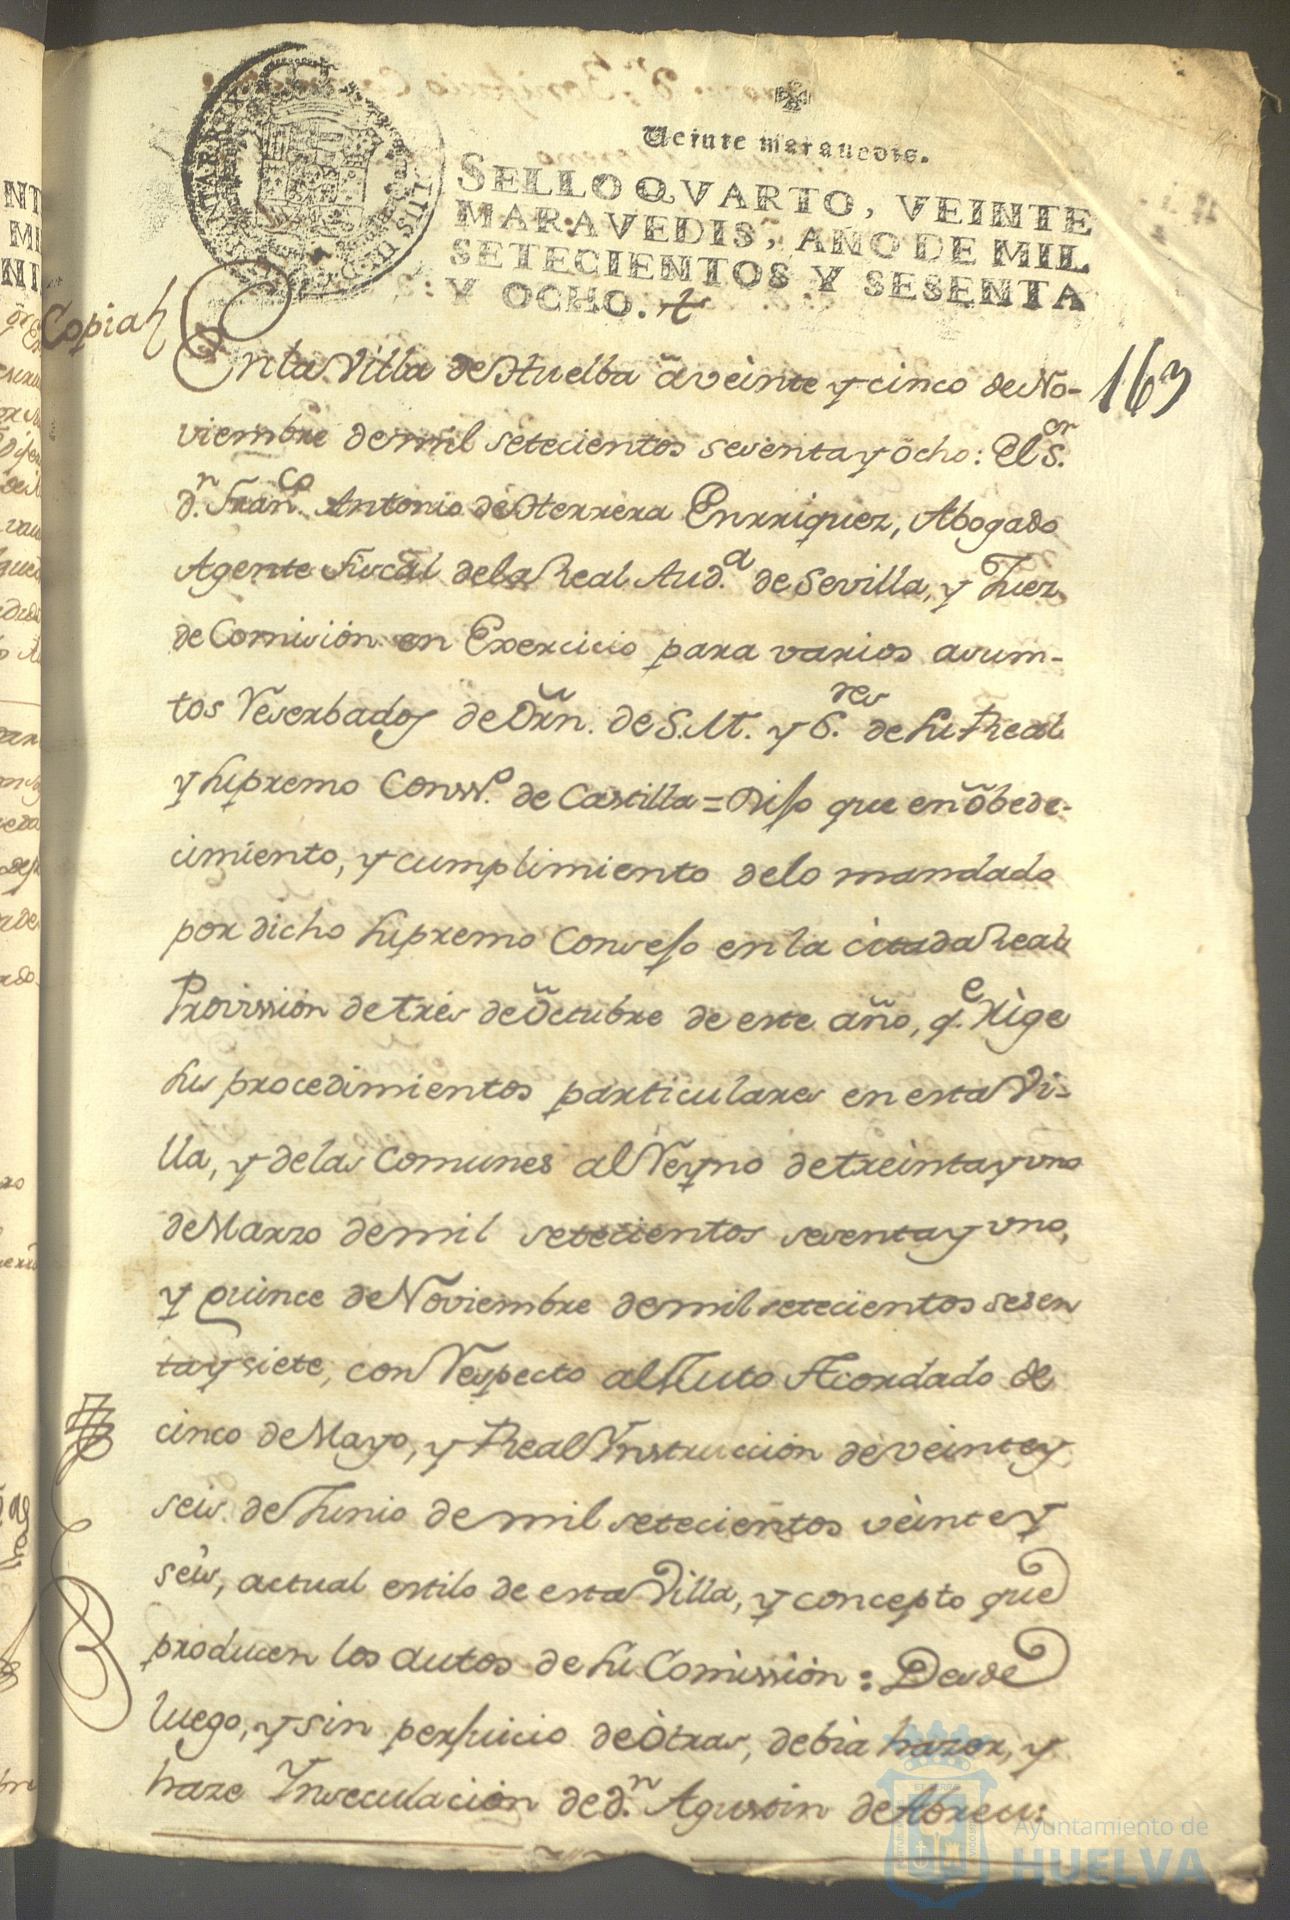 Veinte maravedis.
SELLO QVARTO, VEINTE
MARAVEDIS, AÑO DE MIL
SETECIENTOS Y SESENTA
Y OCHO.
Copia
163
En la Villa de Huelba a veinte y cinco de No-
viembre de mil setecientos sesenta y ocho: El S.or
d.n Fran.co Antonio de Herrera Enrriquez, Abogado
Agente Fiscal de la Real Aud.a de Sevilla, y Juez
de Comision en Exercicio para varios asum-
tos Reserbados de Orn. de S.M. y S.res de su Real
y supremo Conss.o de Castilla = Dijo que en obede-
cimiento, y cumplimiento de lo mandado
por dicho supremo Consejo en la citada Real
Provission de tres de Octubre de este año, q.e rige
sus procedimientos particulares en esta Vi-
lla, y de las Comunes al Reyno de treinta y uno
de Marzo de mil setecientos sesenta y uno,
y quince de Noviembre de mil setecientos sesen
ta y siete, con Respecto al Auto Acordado de
cinco de Mayo, y Real Ynstruccion de veinte y
seis de Junio de mil setecientos veinte y
seis, actual estilo de esta Villa, y concepto que
producen los autos de su Comission: Desde
luego, y sin perjuicio de otras, debia hazer, y
haze Ynseculacion de d.n Agustin de Abreu:
Ayuntamiento de
HUELVA